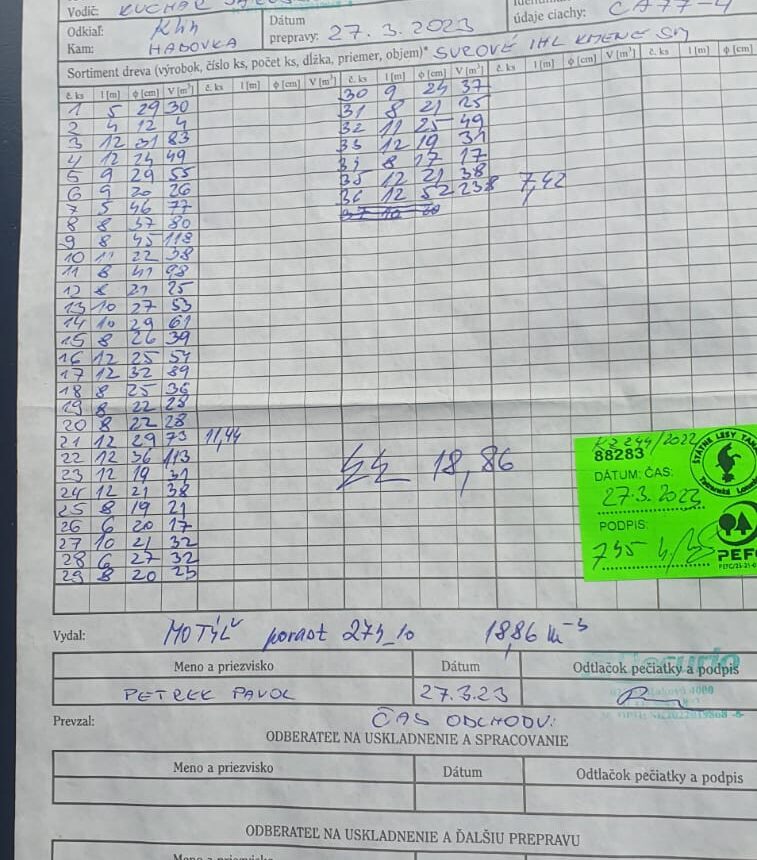 Vodič: KUCHÁR
Odkiaľ: Khn
Dátum prepravy: 27. 3. 2023
údaje ciachy: CA77-4
Kam: HABOVKA
Sortiment dreva (výrobok, číslo ks, počet ks, dĺžka, priemer, objem)* SUROVÉ IHL KMENE SM
č. ks l [m] ϕ [cm] V [m³] č. ks l [m] ϕ [cm] V [m³] č. ks l [m] ϕ [cm] V [m³] č. ks l [m] ϕ [cm] V [m³] č. ks l [m] ϕ [cm]
1 5 29 30 30 9 24 37
2 4 12 4 31 8 21 25
3 12 31 83 32 11 25 49
4 12 24 49 33 12 19 31
5 9 29 55 34 8 17 17
6 9 20 26 35 12 21 38
7 5 46 77 36 12 52 238 7,42
8 8 37 80 37 10 20
9 8 45 118
10 11 22 38
11 8 41 98
12 8 21 25
13 10 27 53
14 10 29 61
15 8 26 39
16 12 25 54
17 12 32 89
18 8 25 36
19 8 22 28
20 8 22 28
21 12 29 73 11,44
22 12 36 113
23 12 19 31
24 12 21 38
25 8 19 21
26 6 20 17
27 10 21 32
28 6 27 32
29 8 20 23
18,86
244/2022
88283
DÁTUM: ČAS:
27.3.2023
PODPIS:
745
ŠTÁTNE LESY TANAP
PEFC
Vydal: MOTÝĽ porast 274_10 18,86 m-3
Meno a priezvisko Dátum Odtlačok pečiatky a podpis
PETREK PAVOL 27.3.23
Prevzal: ČAS ODCHODU:
ODBERATEĽ NA USKLADNENIE A SPRACOVANIE
Meno a priezvisko Dátum Odtlačok pečiatky a podpis
ODBERATEĽ NA USKLADNENIE A ĎALŠIU PREPRAVU
Meno a priezvisko